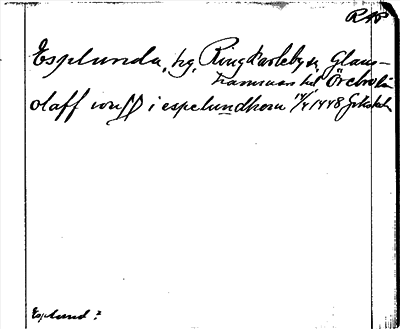 RAP
Esplunda, hg, Ringkarleby sn, Glans-
hammars hd Örebro län
olaff wlff i espelundhom 14/4 1448
Esplund?